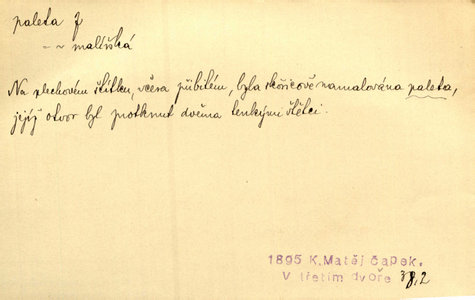 paleta f
-~ malířská
Na plechovém štítku, včera přibitém, byla skořicově namalována paleta,
jejíž otvor byl protknut dvěma tenkými štětci.
1895 K. Matěj Čapek.
V třetím dvoře 38,2